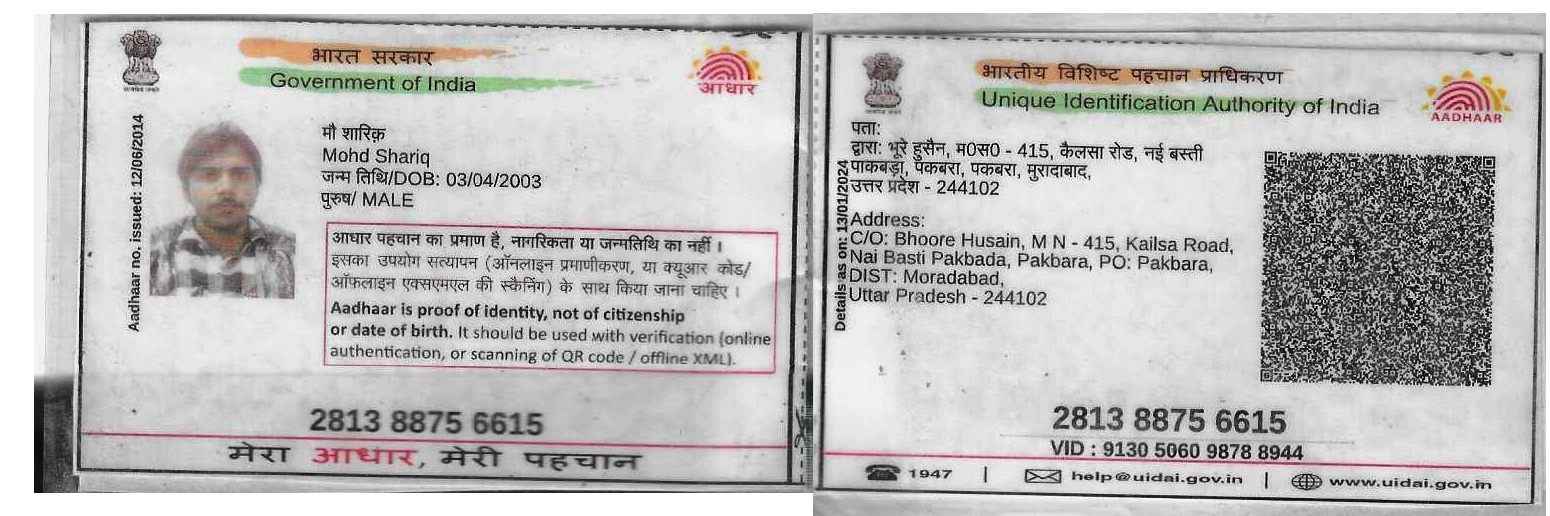 भारत सरकार
Government of India
आधार
Aadhaar no. issued: 12/06/2014
मौ शारिक़
Mohd Shariq
जन्म तिथि/DOB: 03/04/2003
पुरुष/ MALE
आधार पहचान का प्रमाण है, नागरिकता या जन्मतिथि का नहीं ।
इसका उपयोग सत्यापन (ऑनलाइन प्रमाणीकरण, या क्यूआर कोड/
ऑफ़लाइन एक्सएमएल की स्कैनिंग) के साथ किया जाना चाहिए ।
Aadhaar is proof of identity, not of citizenship
or date of birth. It should be used with verification (online
authentication, or scanning of QR code / offline XML).
2813 8875 6615
मेरा आधार, मेरी पहचान
भारतीय विशिष्ट पहचान प्राधिकरण
Unique Identification Authority of India
AADHAAR
Details as on: 13/01/2024
पता:
द्वारा: भूरे हुसैन, म0स0 - 415, कैलसा रोड, नई बस्ती
पाकबड़ा, पकबरा, पकबरा, मुरादाबाद,
उत्तर प्रदेश - 244102
Address:
C/O: Bhoore Husain, M N - 415, Kailsa Road,
Nai Basti Pakbada, Pakbara, PO: Pakbara,
DIST: Moradabad,
Uttar Pradesh - 244102
2813 8875 6615
VID : 9130 5060 9878 8944
1947 | help@uidai.gov.in | www.uidai.gov.in